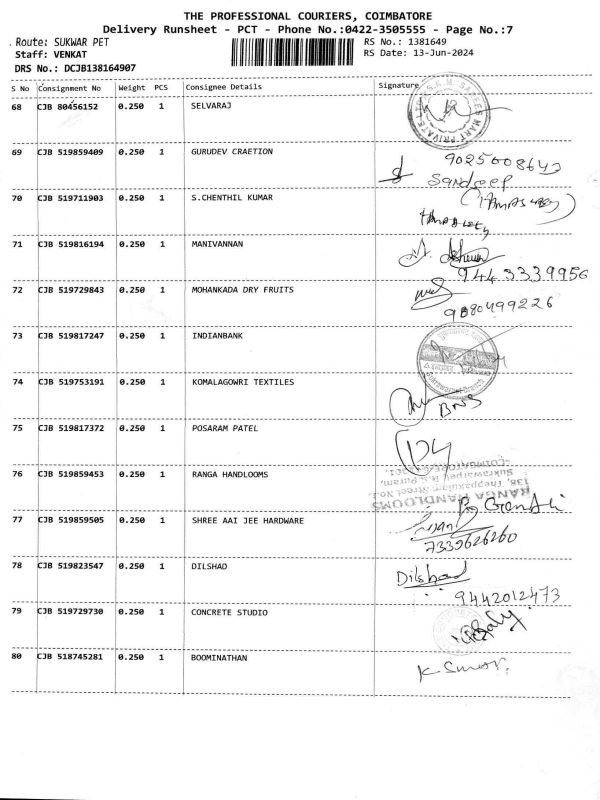 THE PROFESSIONAL COURIERS, COIMBATORE
Delivery Runsheet - PCT - Phone No.:0422-3505555 - Page No.:7
Route: SUKWAR PET RS No.: 1381649
Staff: VENKAT RS Date: 13-Jun-2024
DRS No.: DCJB138164907
S No Consignment No Weight PCS Consignee Details Signature
68 CJB 80456152 0.250 1 SELVARAJ
69 CJB 519859409 0.250 1 GURUDEV CRAETION
Sandeep
70 CJB 519711903 0.250 1 S.CHENTHIL KUMAR
71 CJB 519816194 0.250 1 MANIVANNAN
9443339956
72 CJB 519729843 0.250 1 MOHANKADA DRY FRUITS
9880499226
73 CJB 519817247 0.250 1 INDIANBANK
74 CJB 519753191 0.250 1 KOMALAGOWRI TEXTILES
BNS
75 CJB 519817372 0.250 1 POSARAM PATEL
76 CJB 519859453 0.250 1 RANGA HANDLOOMS
RANGA HANDLOOMS
138, Theppakulam Street No.
Sukrawarpet, R.S. Puram,
77 CJB 519859505 0.250 1 SHREE AAI JEE HARDWARE
7339626260
78 CJB 519823547 0.250 1 DILSHAD
Dilshad
9442012473
79 CJB 519729730 0.250 1 CONCRETE STUDIO
80 CJB 518745281 0.250 1 BOOMINATHAN